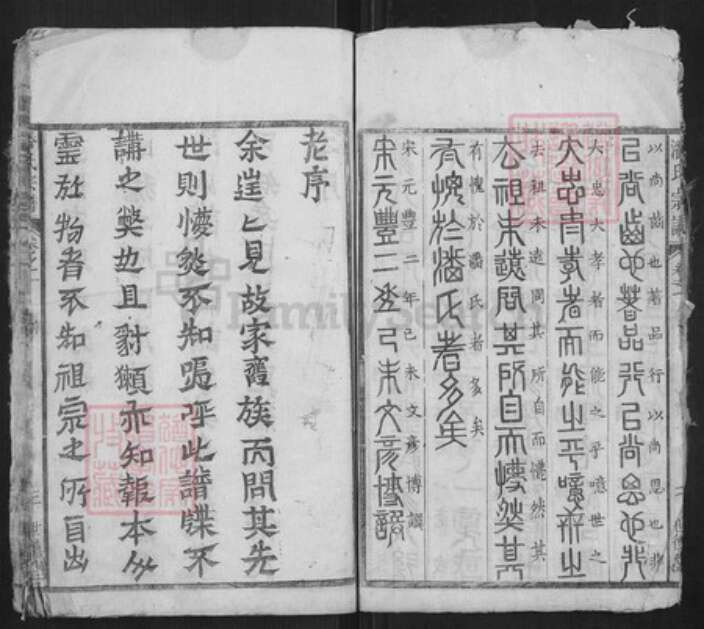 潘氏宗譜 卷之一
以尚齒也著品行以尚恩也非
以尚齒也著品行以尚恩也非
大忠大孝者而能之乎噫世之
大忠大孝者而能之乎噫世之
去祖未遠問其所自而懵然其
去祖未遠問其所自而懵然其
有愧於潘氏者多矣
有愧於潘氏者多矣
宋元豐二年己未文彥博譔
宋元豐二年己未文彥博譔
老序
余往匕見故家舊族而問其先
世則懵然不知嗚呼此譜牒不
講之獘也且豺獺亦知報本人
靈於物者不知祖宗之所自出
FamilySearch